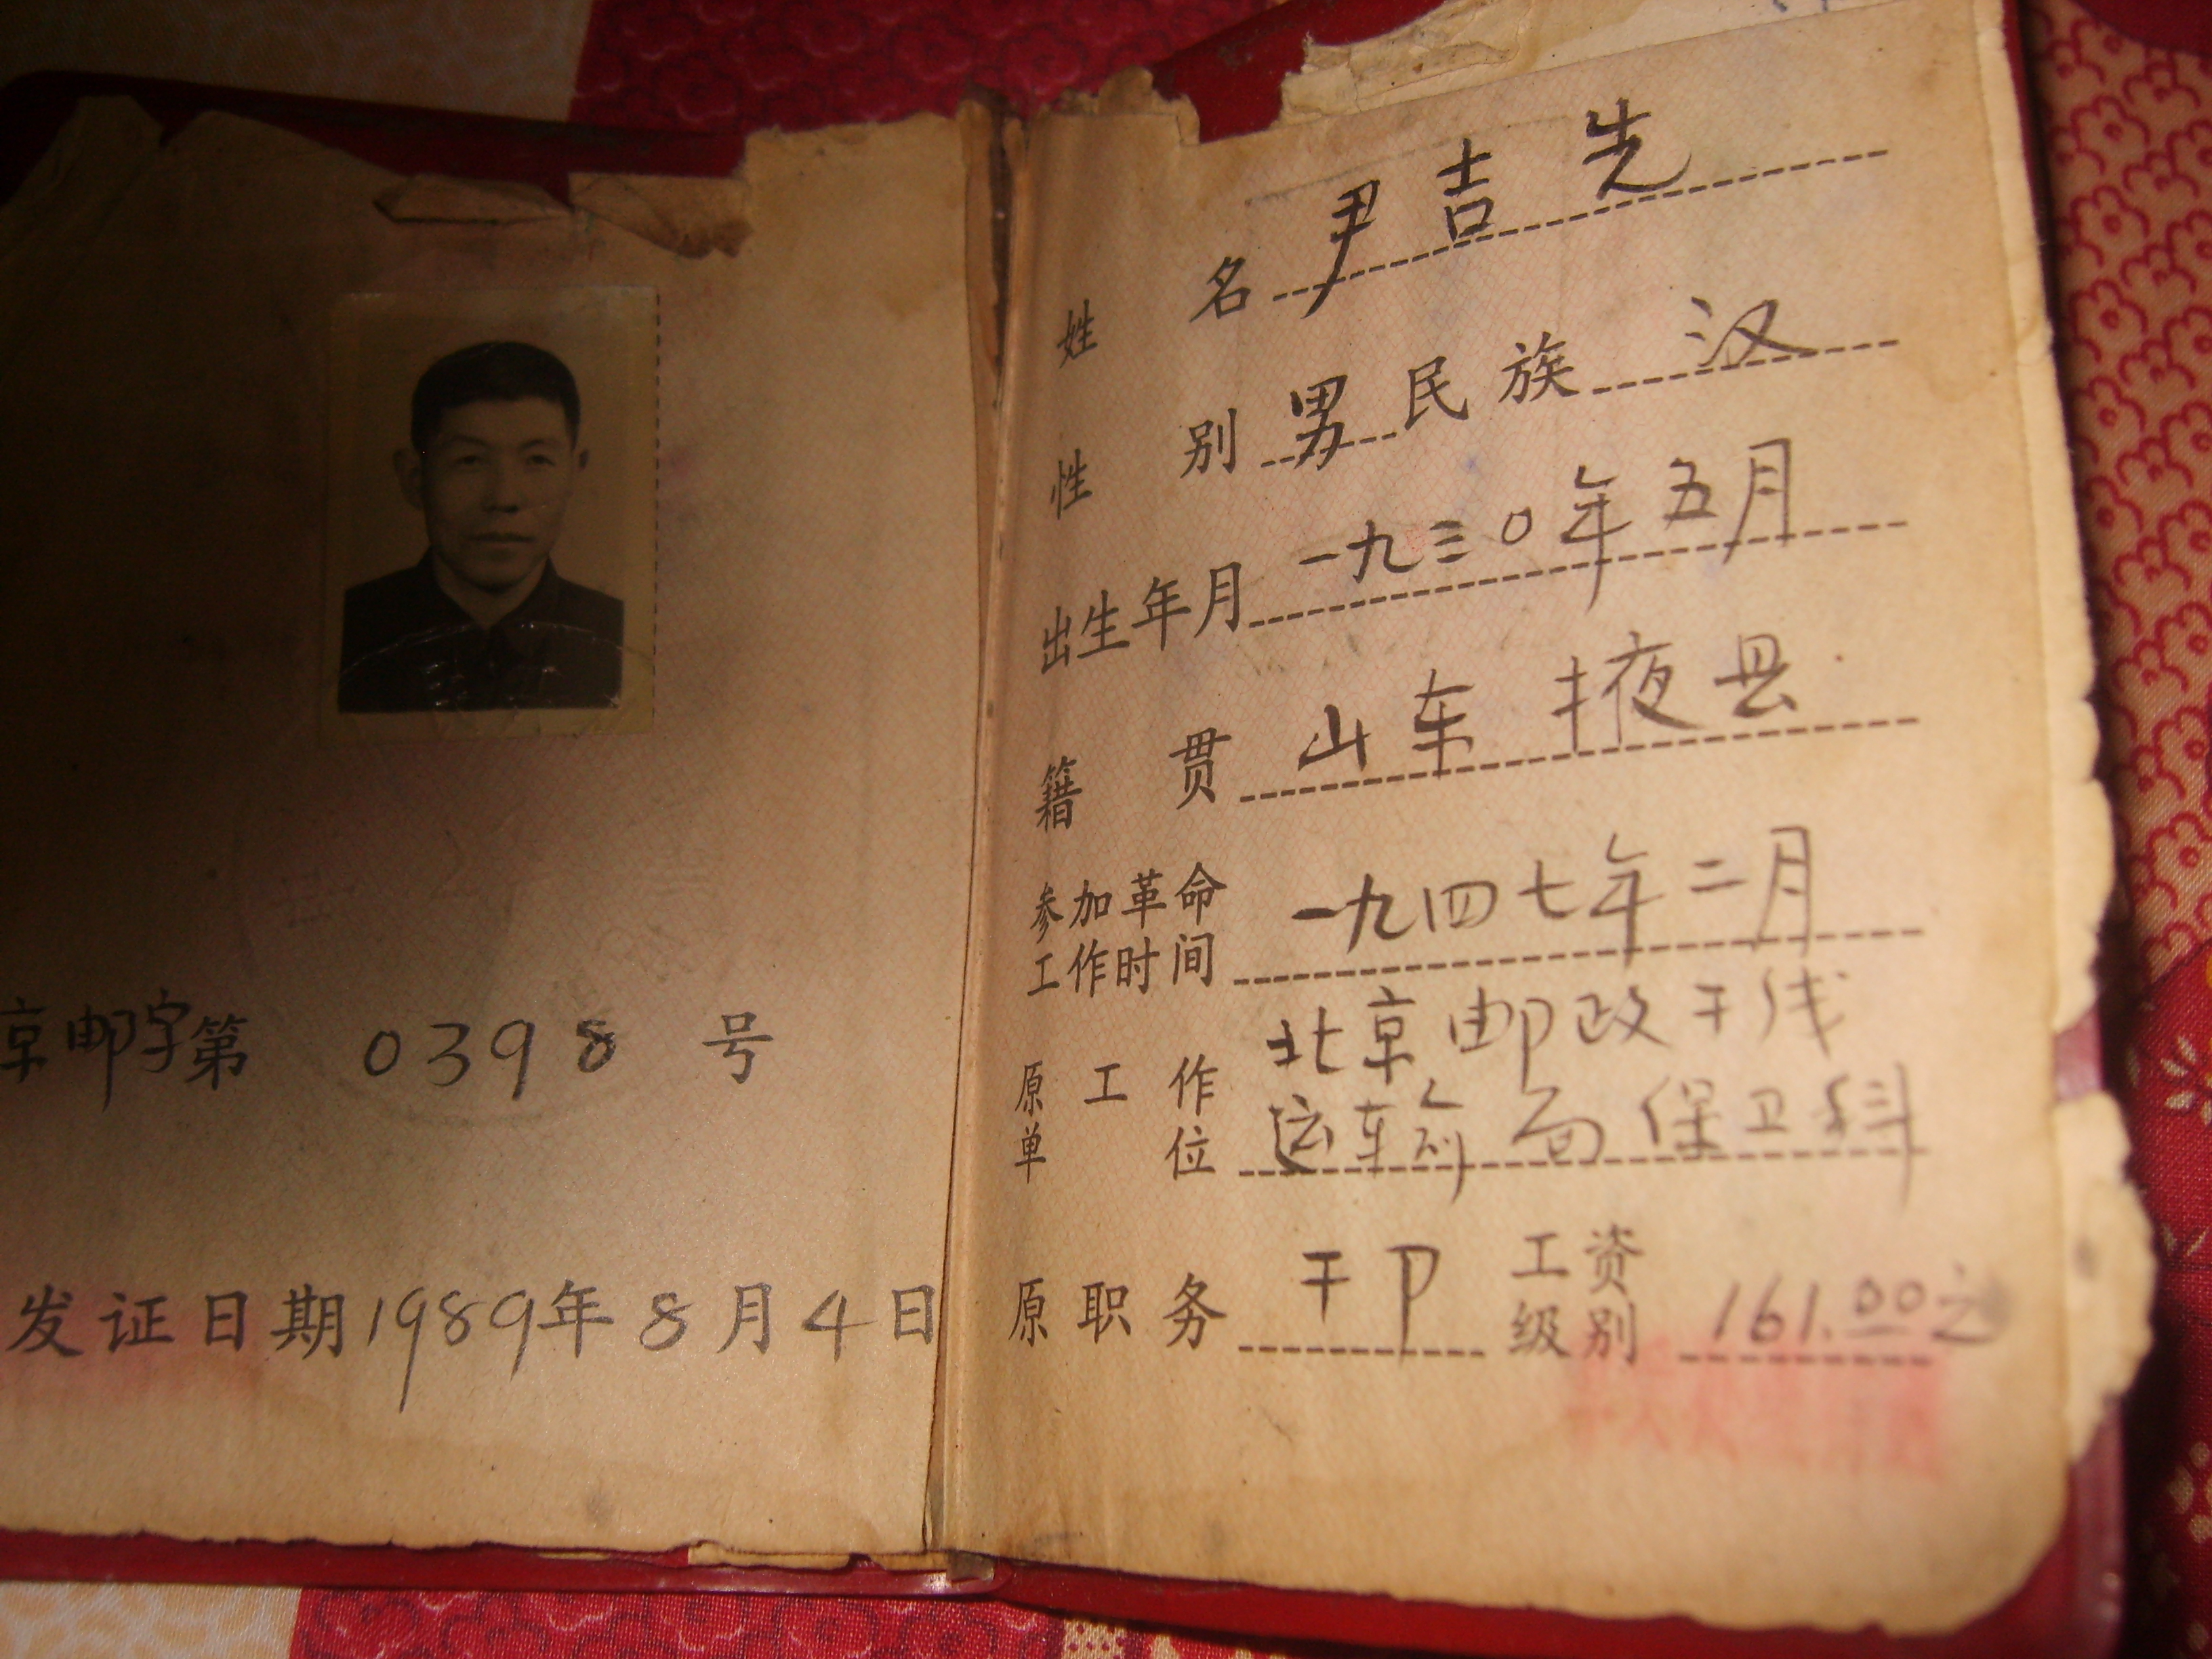 京邮字第 0398 号
发证日期1989年8月4日
姓名 尹吉先
性别 男 民族 汉
出生年月 一九三〇年五月
籍贯 山东掖县
参加革命
工作时间 一九四七年二月
原工作
单位 北京邮政干线
运输局保卫科
原职务 干卩 工资
级别 161.00元